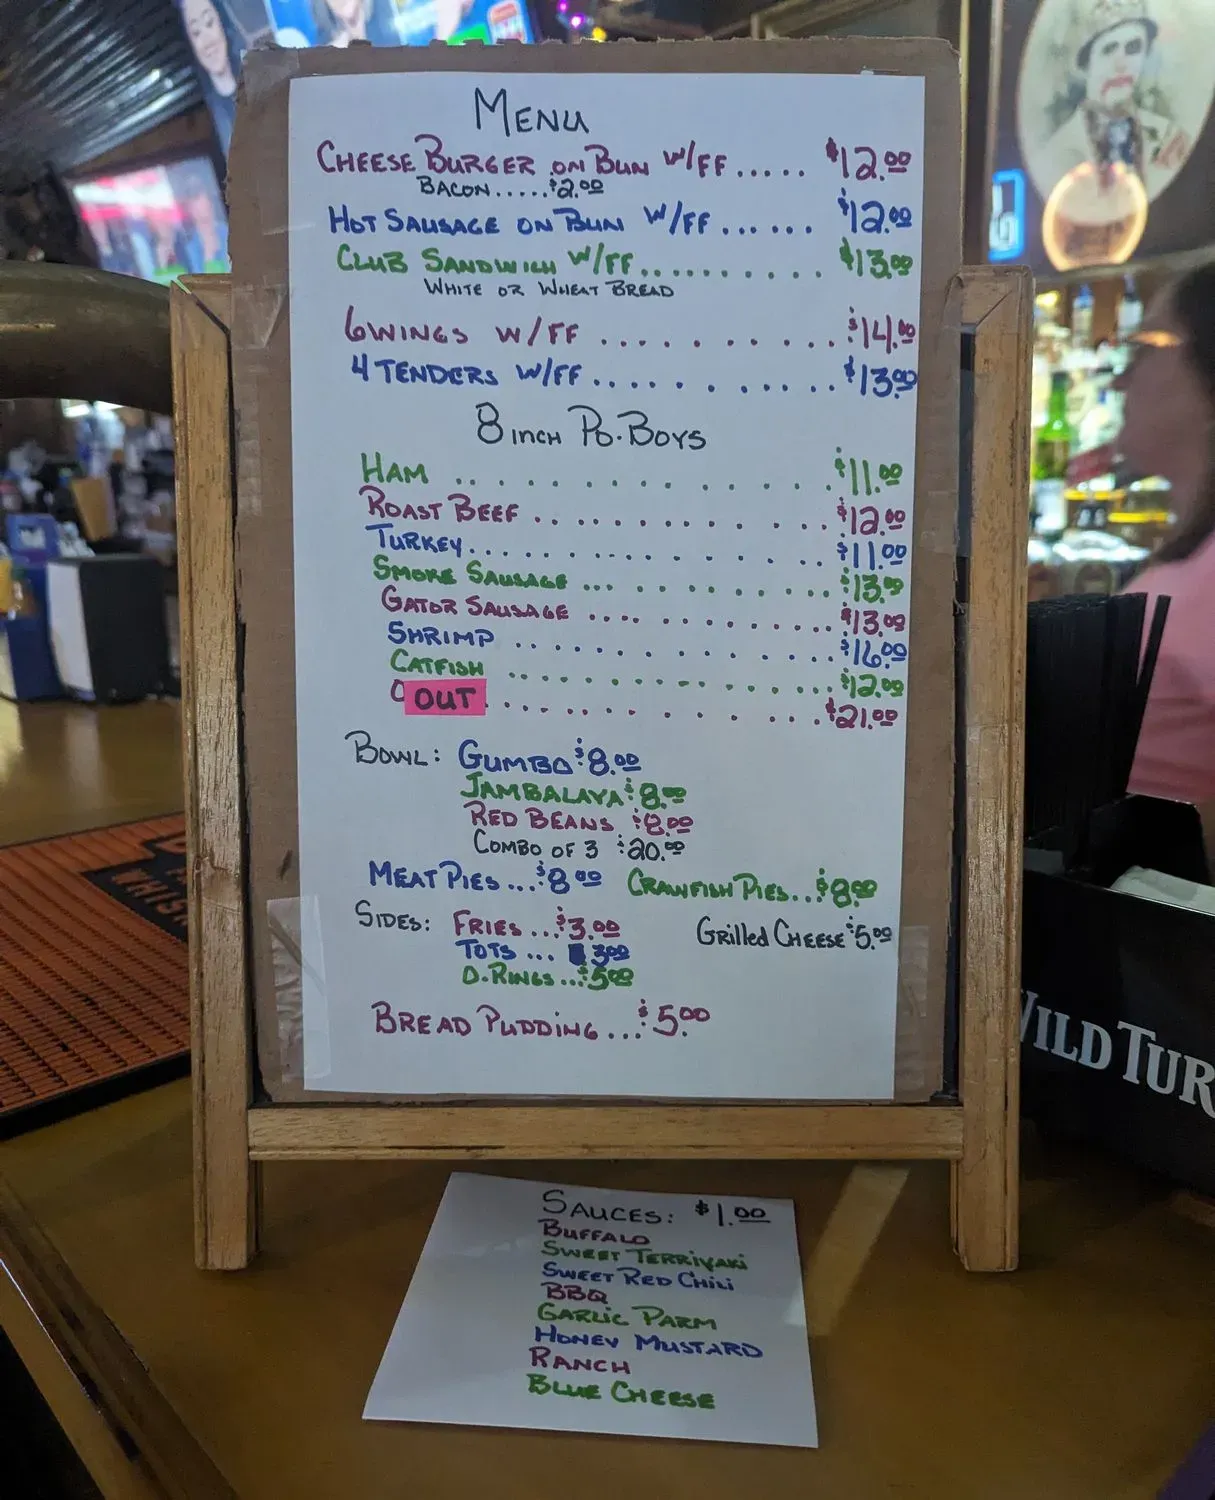 MENU
CHEESE BURGER ON BUN W/FF..... $12.00
BACON.....$2.00
HOT SAUSAGE ON BUN W/FF...... $12.00
CLUB SANDWICH W/FF.......... $13.00
WHITE OR WHEAT BREAD
6 WINGS W/FF .......... $14.00
4 TENDERS W/FF.......... $13.00
8 INCH PO.BOYS
HAM ............... $11.00
ROAST BEEF ............. $12.00
TURKEY............... $11.00
SMOKE SAUSAGE ........... $13.00
GATOR SAUSAGE ............ $13.00
SHRIMP .............. $16.00
CATFISH .............. $12.00
OUT ............. $21.00
BOWL: GUMBO $8.00
JAMBALAYA $8.00
RED BEANS $8.00
COMBO OF 3 $20.00
MEAT PIES...$8.00 CRAWFISH PIES...$8.00
SIDES: FRIES...$3.00 GRILLED CHEESE $5.00
TOTS... 3.00
O.RINGS...$5.00
BREAD PUDDING...$5.00
WILD TUR
WHIS
SAUCES: $1.00
BUFFALO
SWEET TERRIYAKI
SWEET RED CHILI
BBQ
GARLIC PARM
HONEY MUSTARD
RANCH
BLUE CHEESE